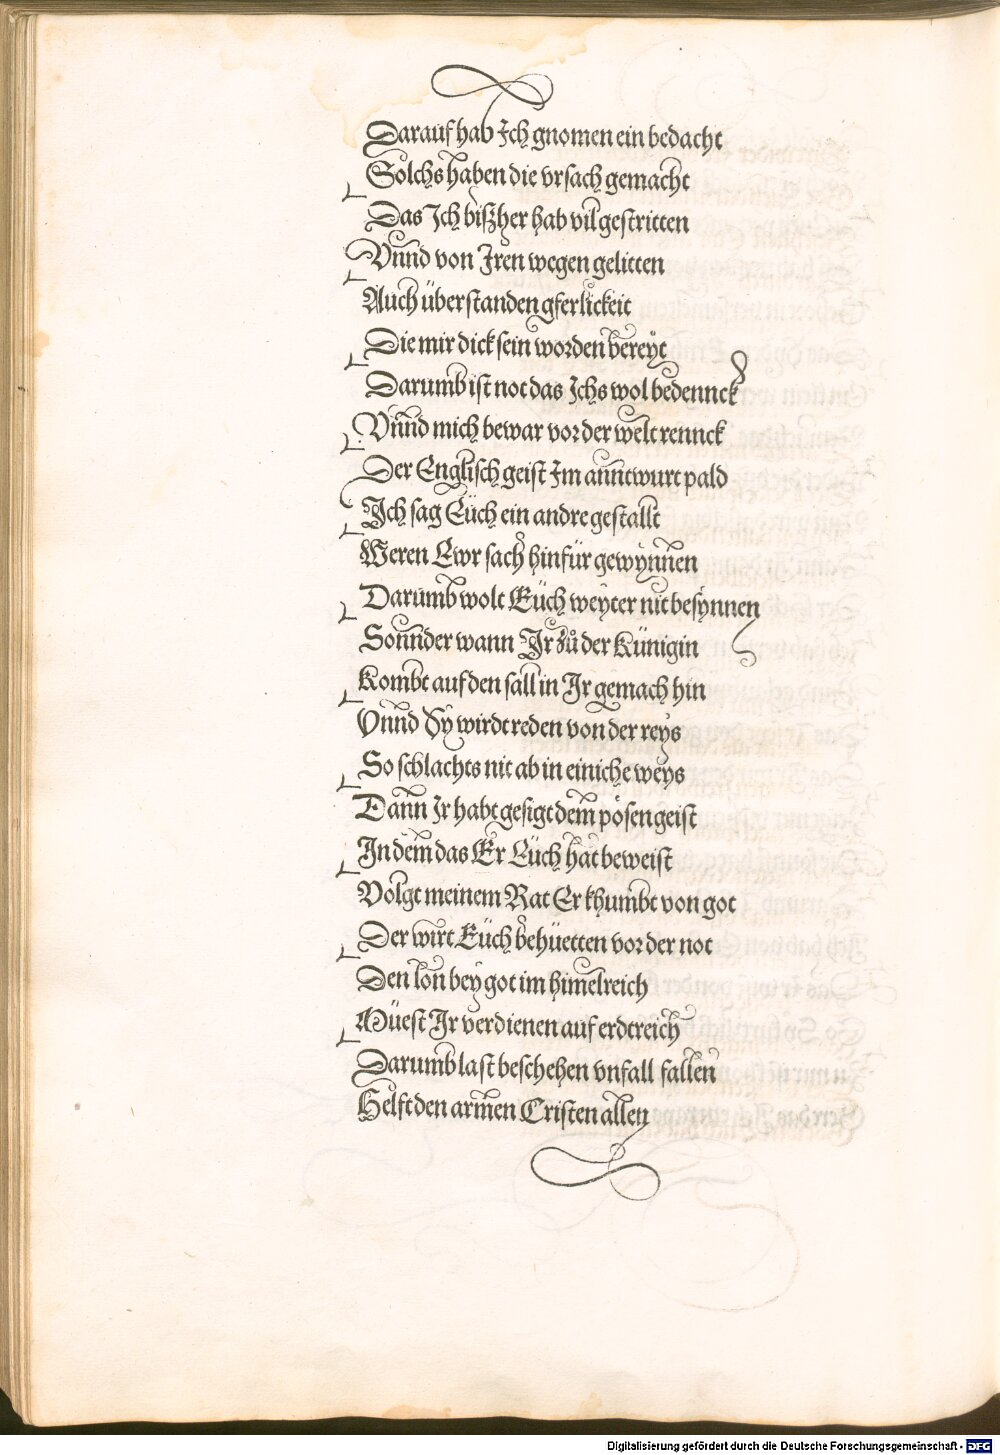 Darauf hab Ich gnomen ein bedacht
Solchs haben die vrsach gemacht
Das Ich bißher hab vil gestritten
Vnnd von Iren wegen gelitten
Auch überstanden gferlickeit
Die mir dick sein worden bereyt
Darumb ist not das Ichs wol bedennck
Vnnd mich bewar vor der welt rennck
Der Englisch geist Im anntwurt pald
Ich sag Eüch ein andre gestallt
Weren Ewr sach hinfür gewynnen
Darumb wolt Eüch weyter nit besynnen
Sonnder wann Ir zů der Künigin
Kombt auf den sall in Ir gemach hin
Vnnd Sy wirdt reden von der reys
So schlachts nit ab in einiche weys
Dann Ir habt gesigt dem pösen geist
In dem das Er Eüch hat beweist
Volgt meinem Rat Er khumbt von got
Der wirt Eüch behüetten vor der not
Den lon bey got im himelreich
Müest Ir verdienen auf erdtreich
Darumb last beschehen vnfall fallen
Helft den armen Cristen allen
Digitalisierung gefördert durch die Deutsche Forschungsgemeinschaft - DFG